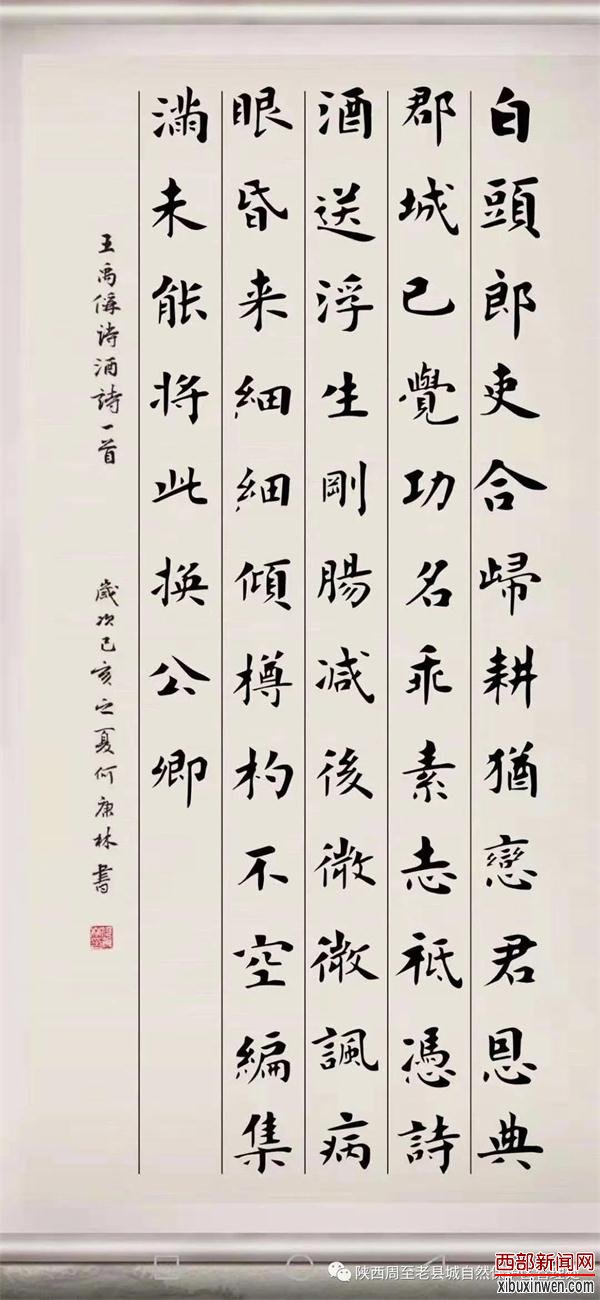 白頭郎吏合歸耕猶戀君恩典
郡城已覺功名乖素志祗憑詩
酒送浮生剛腸減後微微諷病
眼昏来細細傾樽杓不空編集
滿未能將此換公卿
王禹偁诗酒詩一首
歲次己亥之夏何康林書
陕西周至老县城自然保
西部新闻网
xibuxinwen.com